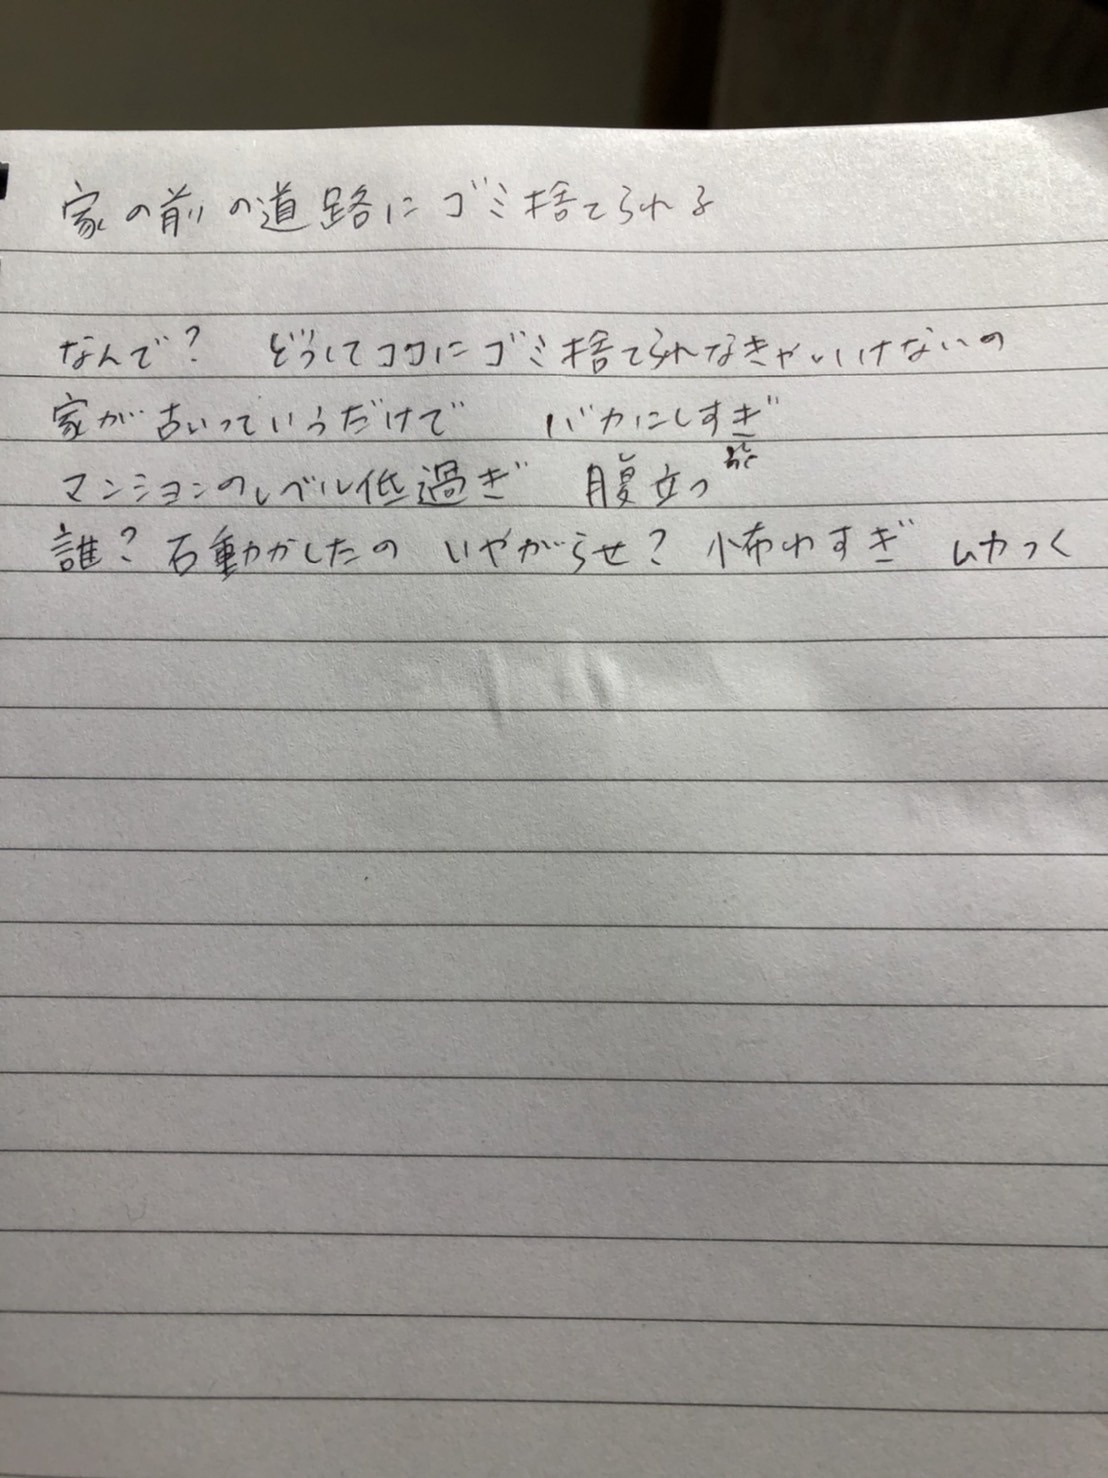 家の前の道路にゴミ捨てられる
なんで? どうしてココにゴミ捨てられなきゃいけないの
家が古いっていうだけで バカにしすぎ
マンションのレベル低過ぎ 腹立つ
誰?石動かしたの いやがらせ? 怖わすぎ ムカつく